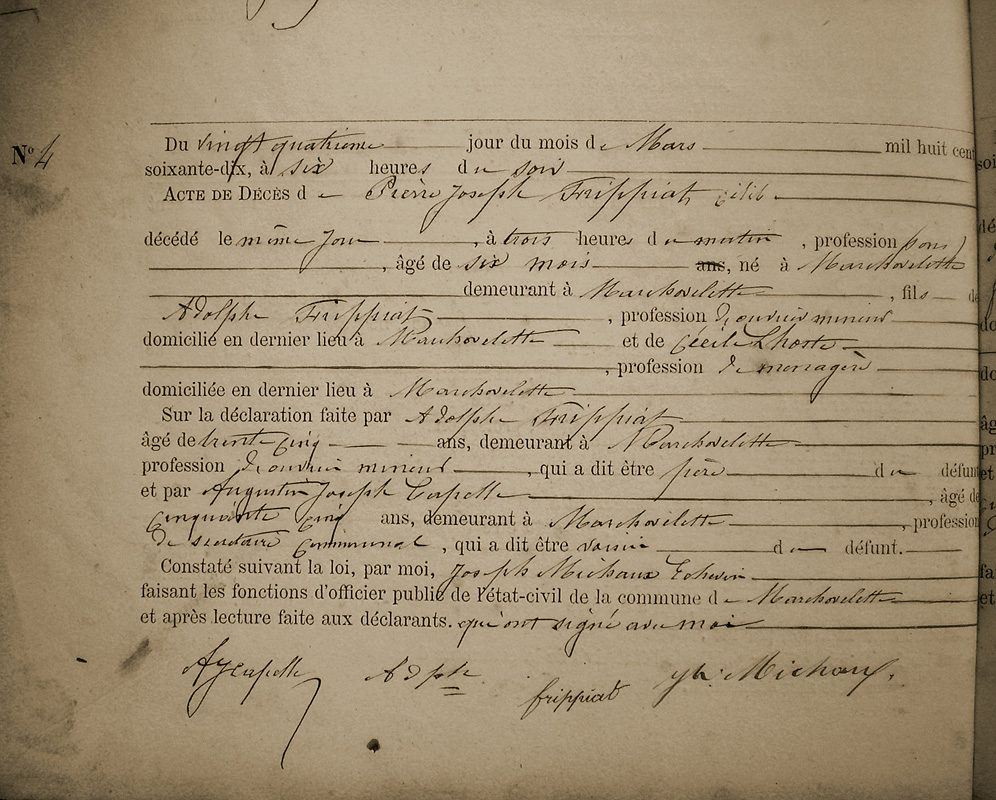 N° 4
Du vingt quatrieme jour du mois de Mars mil huit cent
soixante-dix, à six heures du soir
ACTE DE DÉCÈS de Pierre Joseph Frippiat célib
décédé le même jour, à trois heures du matin, profession sans
, âgé de six mois ans, né à Marchovelette
demeurant à Marchovelette, fils de
Adolphe Frippiat, profession d'ouvrier mineur
domicilié en dernier lieu à Marchovelette et de Cécile Lhoste
, profession de menagère
domiciliée en dernier lieu à Marchovelette
Sur la déclaration faite par Adolphe Frippiat
âgé de trente cinq ans, demeurant à Marchovelette
profession d'ouvrier mineur, qui a dit être père du défun
et par Augustin Joseph Capelle, âgé de
cinquante cinq ans, demeurant à Marchovelette, profession
de secrétaire communal, qui a dit être voisin du défunt.
Constaté suivant la loi, par moi, Joseph Michaux Echevin
faisant les fonctions d'officier public de l'état-civil de la commune de Marchovelette
et après lecture faite aux déclarants. qui ont signé avec moi
AJ Capelle Adphe frippiat Michaux